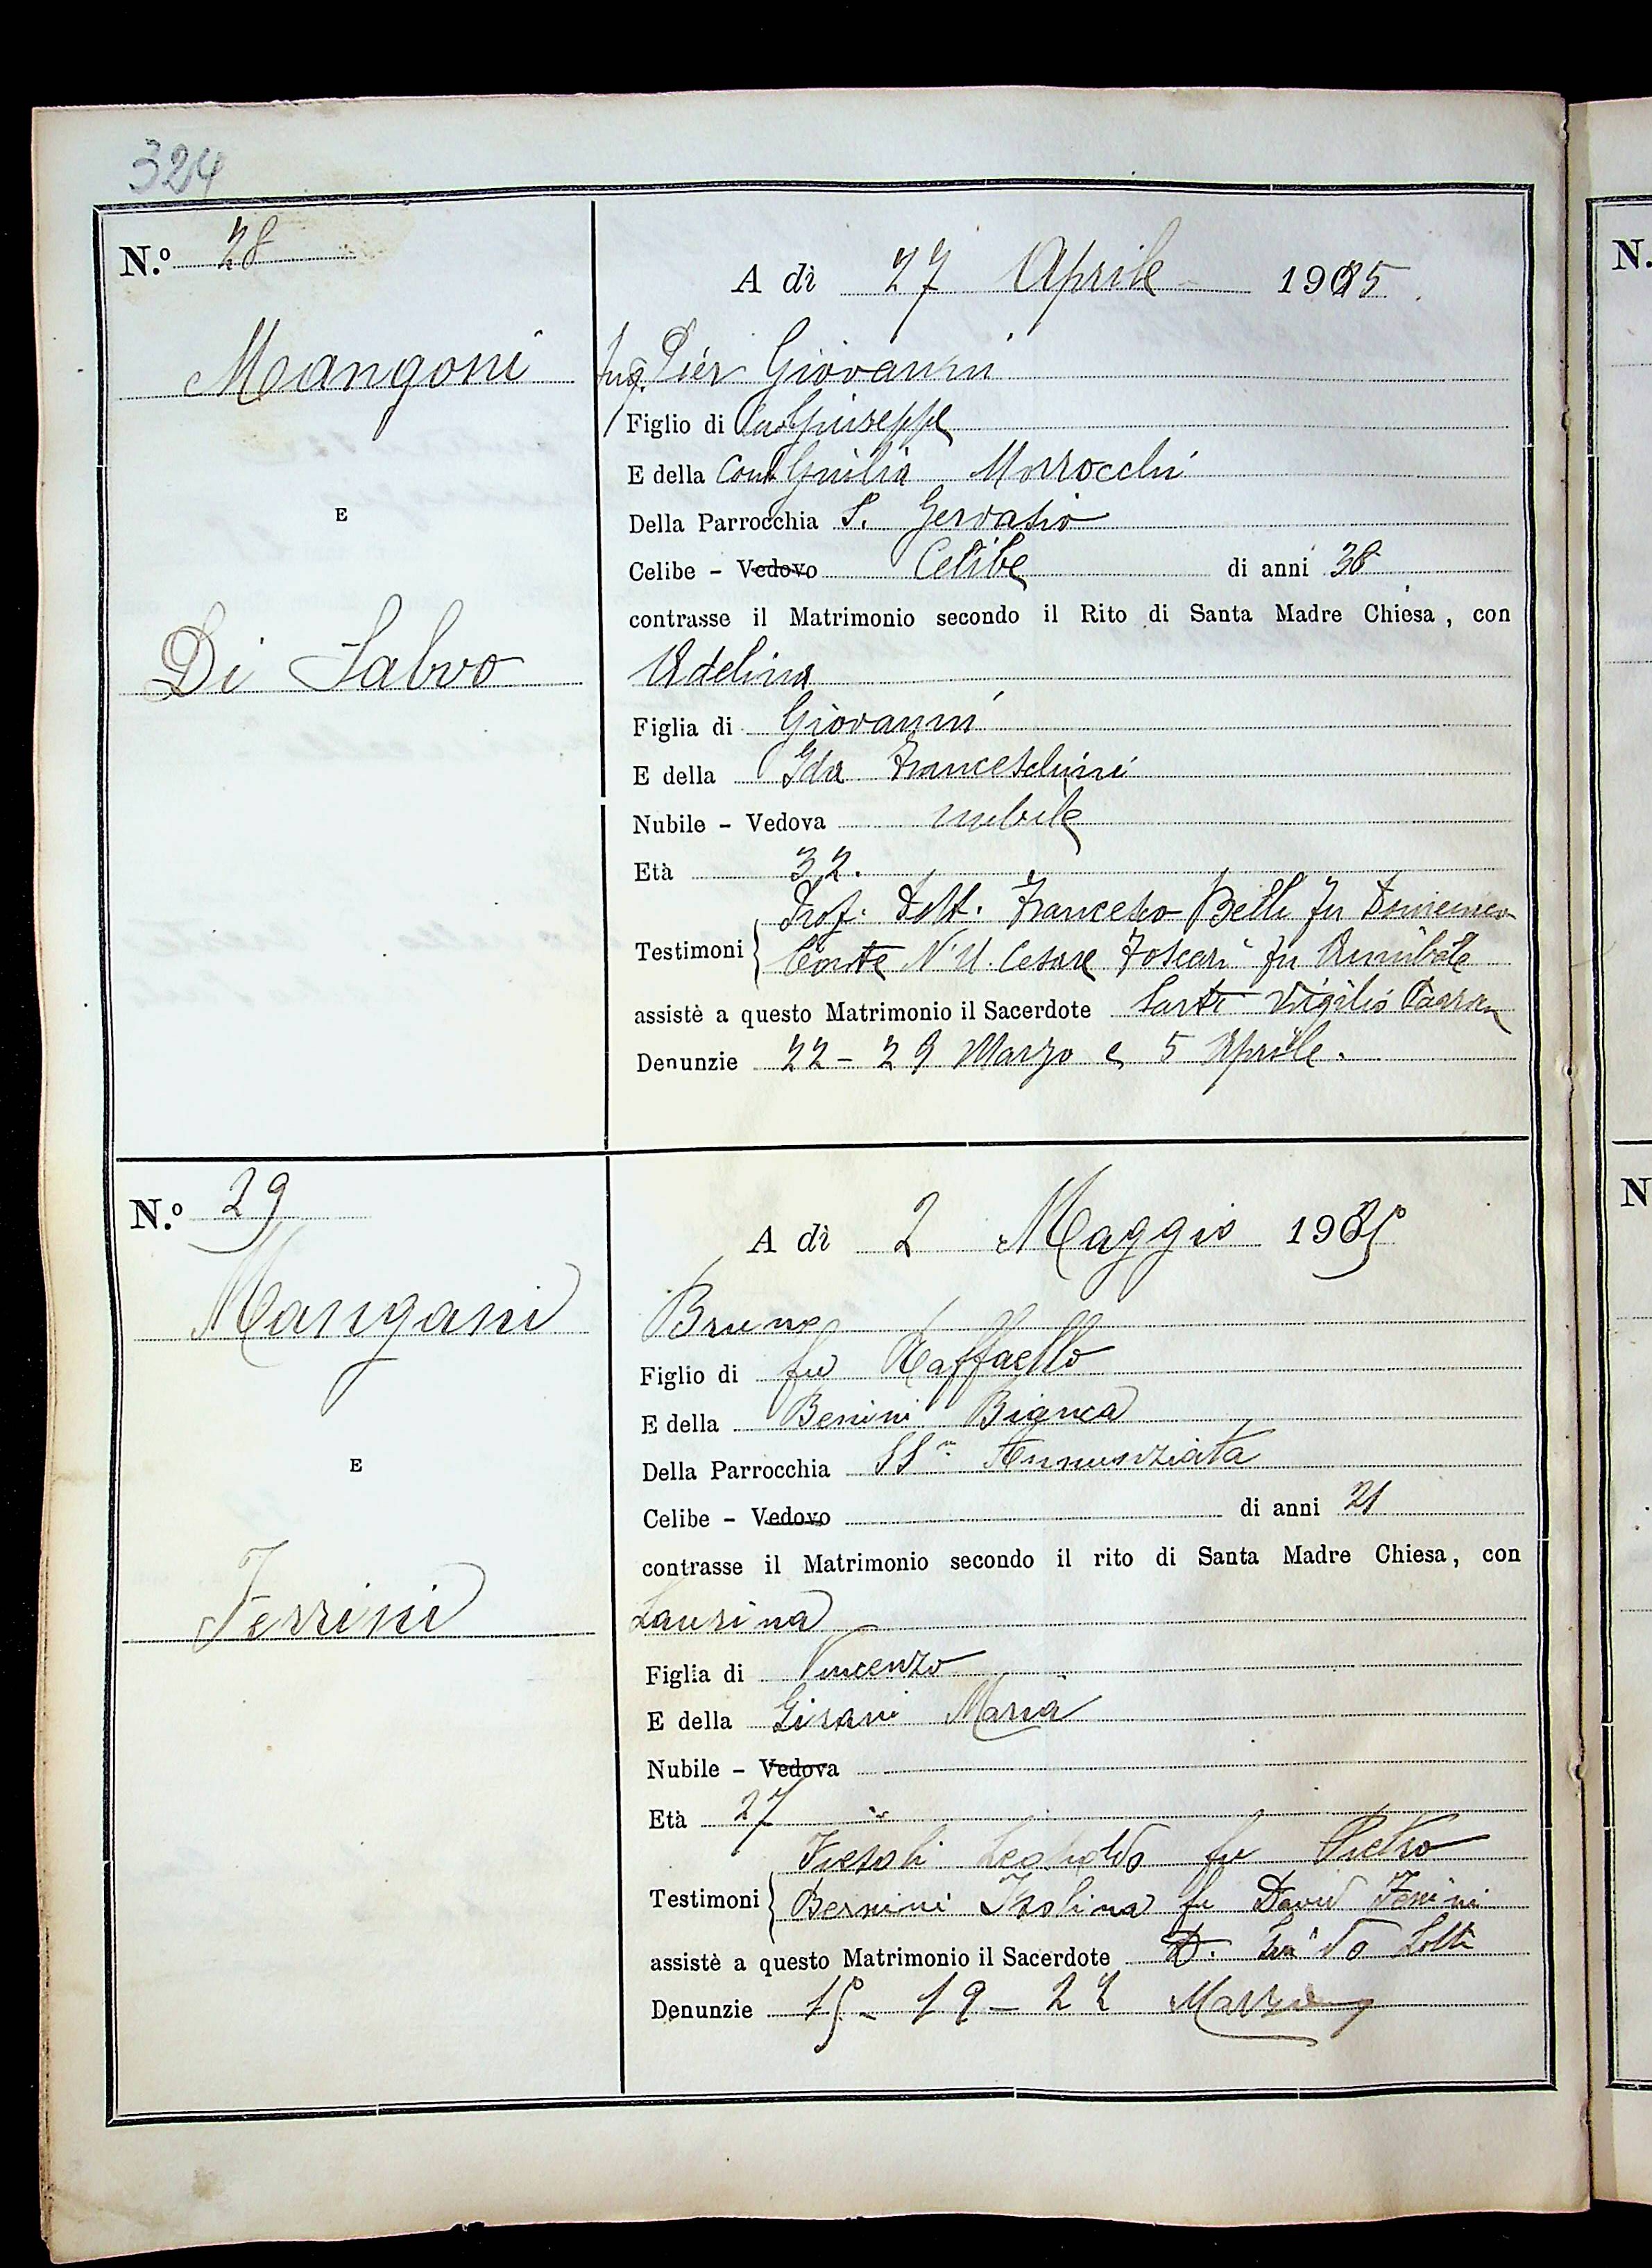 324
N.º 28
A dì 27 Aprile 1925
Mangoni
Ing. Pier Giovanni
Figlio di Giuseppe
E della Giulia Morrocchi
Della Parrocchia S. Gervasio
E
Celibe - Vedovo Celibe di anni 38
contrasse il Matrimonio secondo il Rito di Santa Madre Chiesa, con
Di Salvo
Adelina
Figlia di Giovanni
E della Ida Franceschini
Nubile - Vedova nubile
Età 32.
Prof. Dott. Francesco Belli fu Domenico
Testimoni
Conte N. U. Cesare Foscari fu Annibale
assistè a questo Matrimonio il Sacerdote Sarti Virgilio
Denunzie 22 - 29 Marzo e 5 Aprile.
N.º 29
A dì 2 Maggio 1925
Mangani
Bruno
Figlio di fu Raffaello
E della Benini Bianca
Della Parrocchia SS. Annunziata
E
Celibe - Vedovo di anni 21
contrasse il Matrimonio secondo il rito di Santa Madre Chiesa, con
Ferrini
Laurina
Figlia di Vincenzo
E della Girani Maria
Nubile - Vedova
Età 27
Fiesoli Leopoldo fu Pietro
Testimoni
Bernini Isolina fu David
assistè a questo Matrimonio il Sacerdote D. Lotti
Denunzie 15 - 19 - 22 Marzo
N.
N